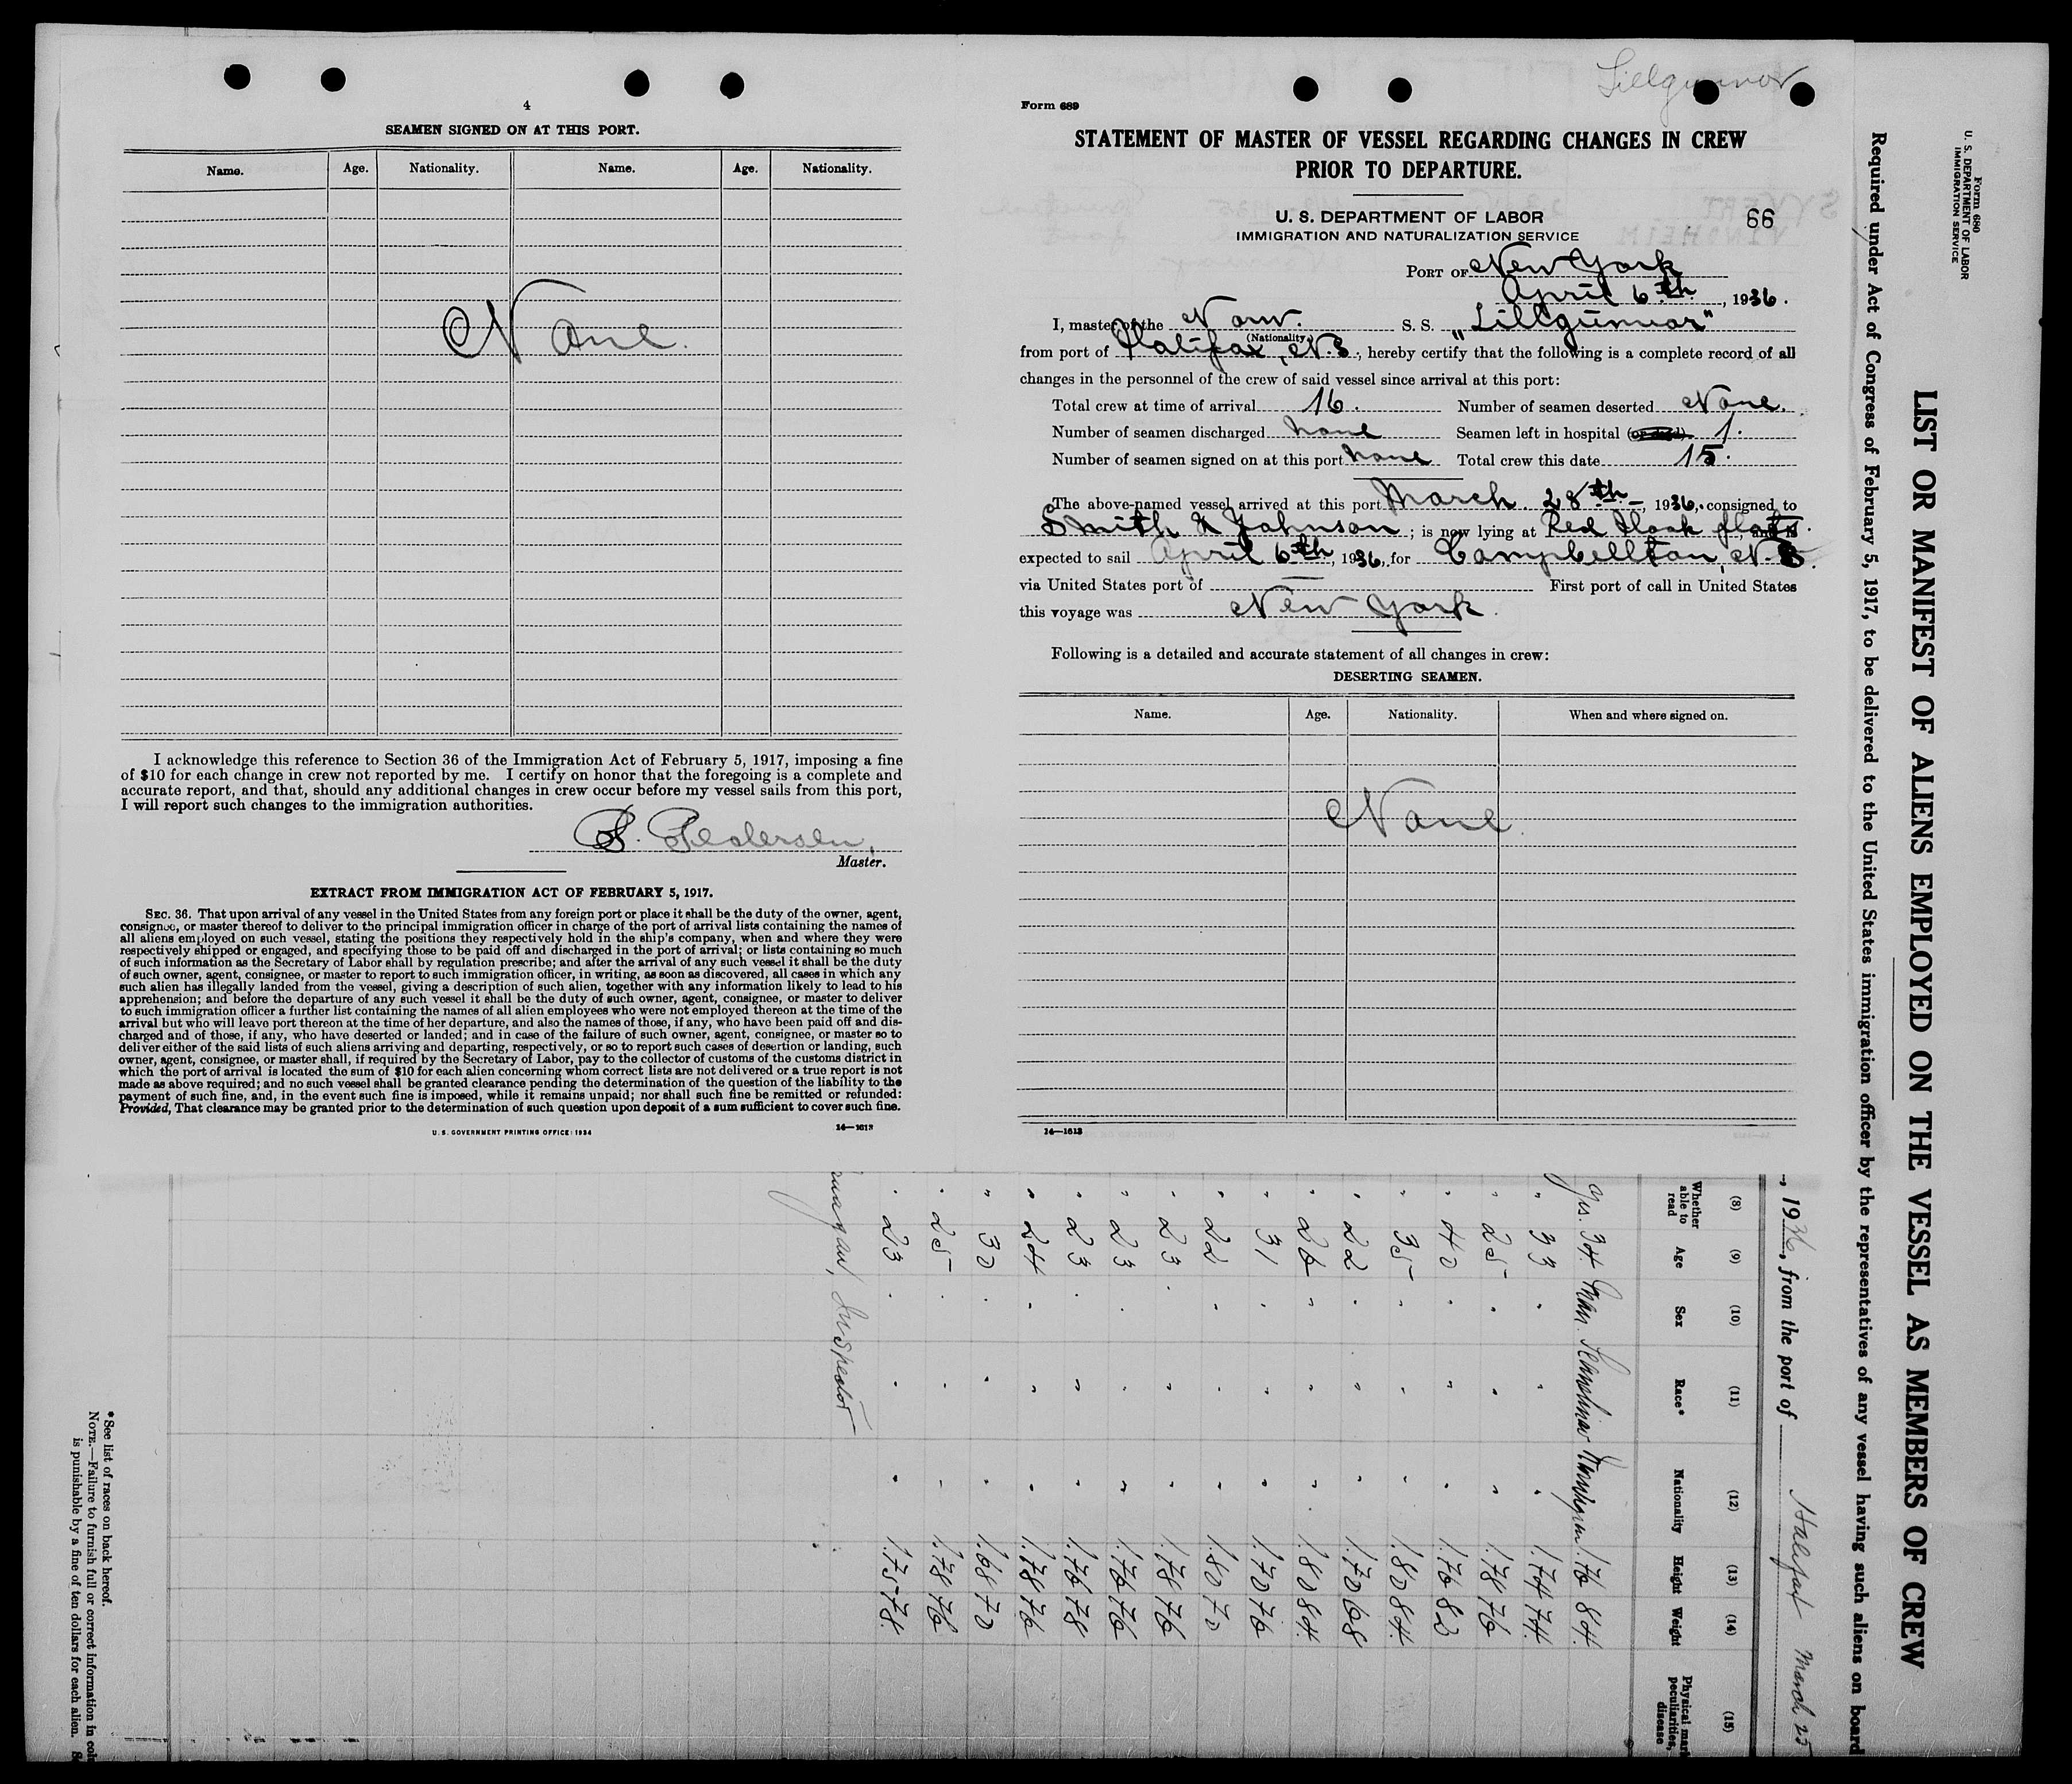 4
SEAMEN SIGNED ON AT THIS PORT.
Name. Age. Nationality. Name. Age. Nationality.
None.
I acknowledge this reference to Section 36 of the Immigration Act of February 5, 1917, imposing a fine
of $10 for each change in crew not reported by me. I certify on honor that the foregoing is a complete and
accurate report, and that, should any additional changes in crew occur before my vessel sails from this port,
I will report such changes to the immigration authorities.
Pedersen,
Master.
EXTRACT FROM IMMIGRATION ACT OF FEBRUARY 5, 1917.
SEC. 36. That upon arrival of any vessel in the United States from any foreign port or place it shall be the duty of the owner, agent,
consignee, or master thereof to deliver to the principal immigration officer in charge of the port of arrival lists containing the names of
all aliens employed on such vessel, stating the positions they respectively hold in the ship's company, when and where they were
respectively shipped or engaged, and specifying those to be paid off and discharged in the port of arrival; or lists containing so much
of such information as the Secretary of Labor shall by regulation prescribe; and after the arrival of any such vessel it shall be the duty
of such owner, agent, consignee, or master to report to such immigration officer, in writing, as soon as discovered, all cases in which any
such alien has illegally landed from the vessel, giving a description of such alien, together with any information likely to lead to his
apprehension; and before the departure of any such vessel it shall be the duty of such owner, agent, consignee, or master to deliver
to such immigration officer a further list containing the names of all alien employees who were not employed thereon at the time of the
arrival but who will leave port thereon at the time of her departure, and also the names of those, if any, who have been paid off and dis-
charged and of those, if any, who have deserted or landed; and in case of the failure of such owner, agent, consignee, or master so to
deliver either of the said lists of such aliens arriving and departing, respectively, or so to report such cases of desertion or landing, such
owner, agent, consignee, or master shall, if required by the Secretary of Labor, pay to the collector of customs of the customs district in
which the port of arrival is located the sum of $10 for each alien concerning whom correct lists are not delivered or a true report is not
made as above required; and no such vessel shall be granted clearance pending the determination of the question of the liability to the
payment of such fine, and, in the event such fine is imposed, while it remains unpaid; nor shall such fine be remitted or refunded:
Provided, That clearance may be granted prior to the determination of such question upon deposit of a sum sufficient to cover such fine.
U. S. GOVERNMENT PRINTING OFFICE: 1934
14—1613
Lillgunvor
Form 689
STATEMENT OF MASTER OF VESSEL REGARDING CHANGES IN CREW
PRIOR TO DEPARTURE.
U. S. DEPARTMENT OF LABOR
66
IMMIGRATION AND NATURALIZATION SERVICE
PORT OF New York
April 6th., 1936.
I, master of the Norw. S. S. "Lillgunvor"
(Nationality)
from port of Halifax, N.S., hereby certify that the following is a complete record of all
changes in the personnel of the crew of said vessel since arrival at this port:
Total crew at time of arrival 16. Number of seamen deserted None.
Number of seamen discharged none Seamen left in hospital (or died) 1.
Number of seamen signed on at this port none Total crew this date 15.
The above-named vessel arrived at this port March 28th, 1936, consigned to
Smith & Johnson; is now lying at Red Hook flats, and is
expected to sail April 6th, 1936, for Campbellton, N.B.
via United States port of — First port of call in United States
this voyage was New York.
Following is a detailed and accurate statement of all changes in crew:
DESERTING SEAMEN.
Name. Age. Nationality. When and where signed on.
None
14—1613
Form 680
U. S. DEPARTMENT OF LABOR
IMMIGRATION SERVICE
LIST OR MANIFEST OF ALIENS EMPLOYED ON THE VESSEL AS MEMBERS OF CREW
Required under Act of Congress of February 5, 1917, to be delivered to the United States immigration officer by the representatives of any vessel having such aliens on board
, 1936, from the port of Halifax March 25
(8) (9) (10) (11) (12) (13) (14) (15)
Whether able to read Age Sex Race* Nationality Height Weight Physical mark peculiarities, disease
yes. 34. Man. Scandinav Norwegian 1.76 84.
" 33 " " " 1.74 74.
" 25 " " " 1.78 76
" 40 " " " 1.76 80
" 35 " " " 1.80 84.
" 22 " " " 1.70 68
" 26 " " " 1.80 84.
" 31 " " " 1.70 76
" 22 " " " 1.80 70
" 23 " " " 1.78 76
" 23 " " " 1.76 76
" 23 " " " 1.76 78
" 24 " " " 1.78 76
" 30 " " " 1.68 70
" 25 " " " 1.78 76
" 23 " " " 1.75 78.
Inspector
*See list of races on back hereof.
NOTE.—Failure to furnish full or correct information in colu
is punishable by a fine of ten dollars for each alien.